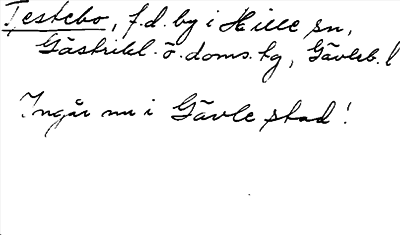 Testebo, f.d. by i Hille sn,
Gästrikl. ö. doms. tg, Gävleb. l
Ingår nu i Gävle stad!